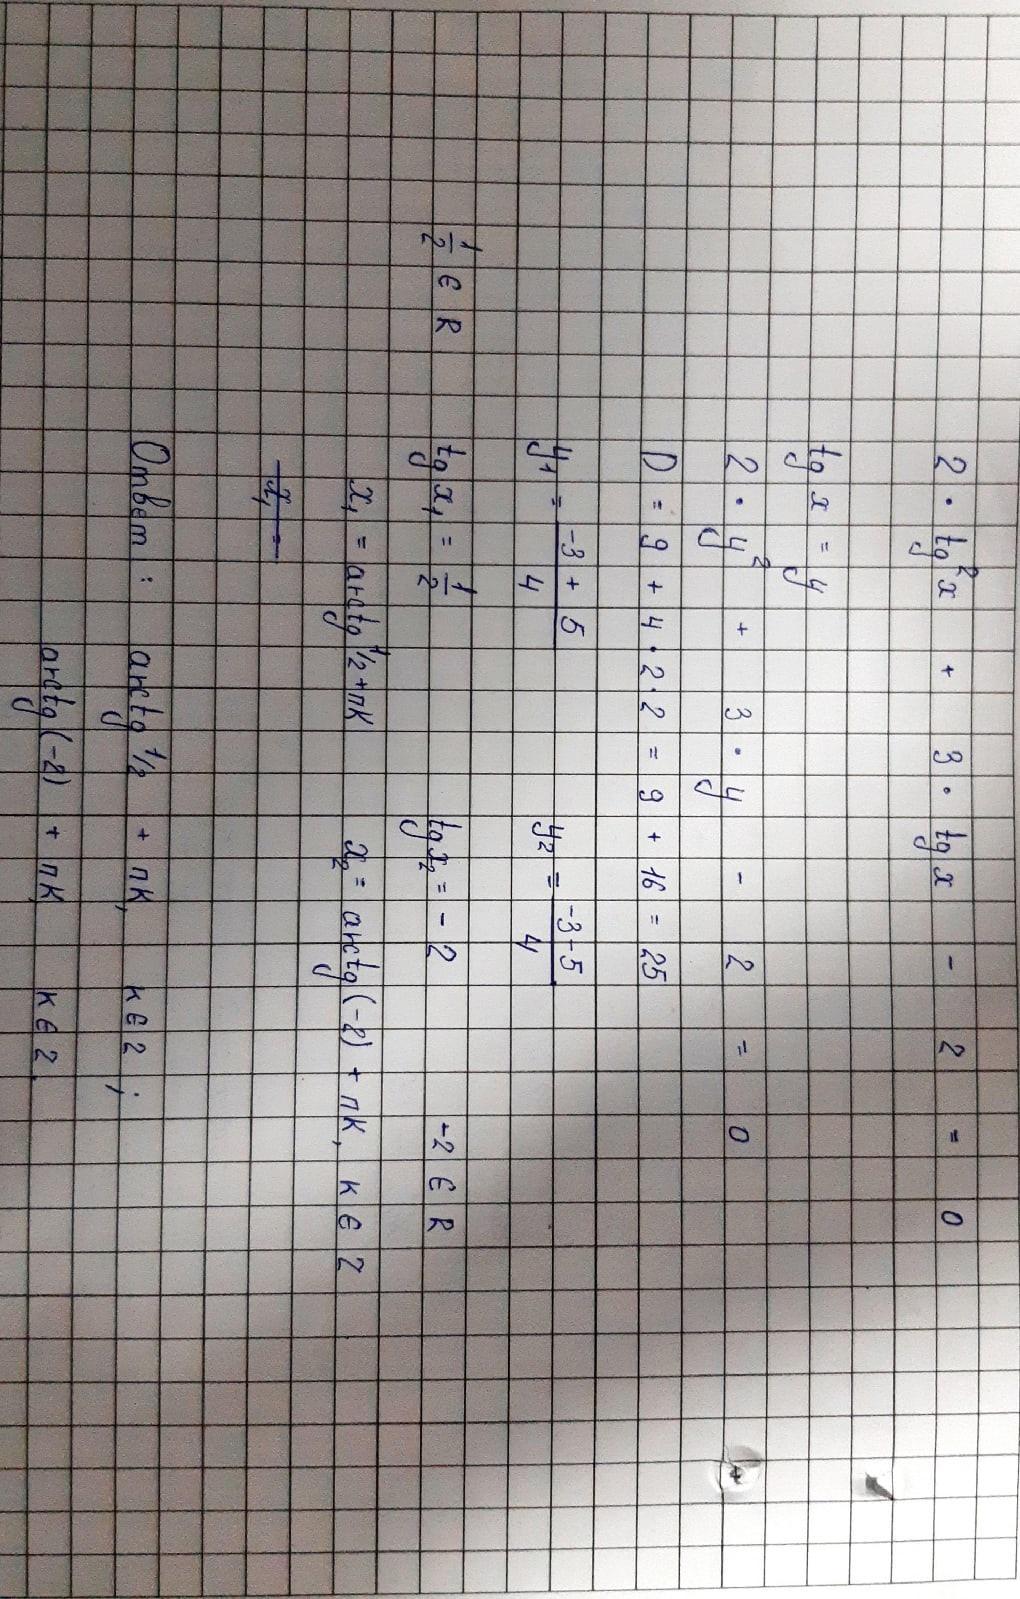 2 · tg²x + 3 · tg x - 2 = 0
tg x = y
2 · y² + 3 · y - 2 = 0
D = 9 + 4 · 2 · 2 = 9 + 16 = 25
y₁ = (-3 + 5)/4 y₂ = (-3 - 5)/4
1/2 ∈ R tg x₁ = 1/2 tg x₂ = -2 -2 ∈ R
x₁ = arctg 1/2 + πK x₂ = arctg(-2) + πK, K ∈ Z
x₁ =
Ответ : arctg 1/2 + πK, K ∈ Z ;
arctg(-2) + πK, K ∈ Z.